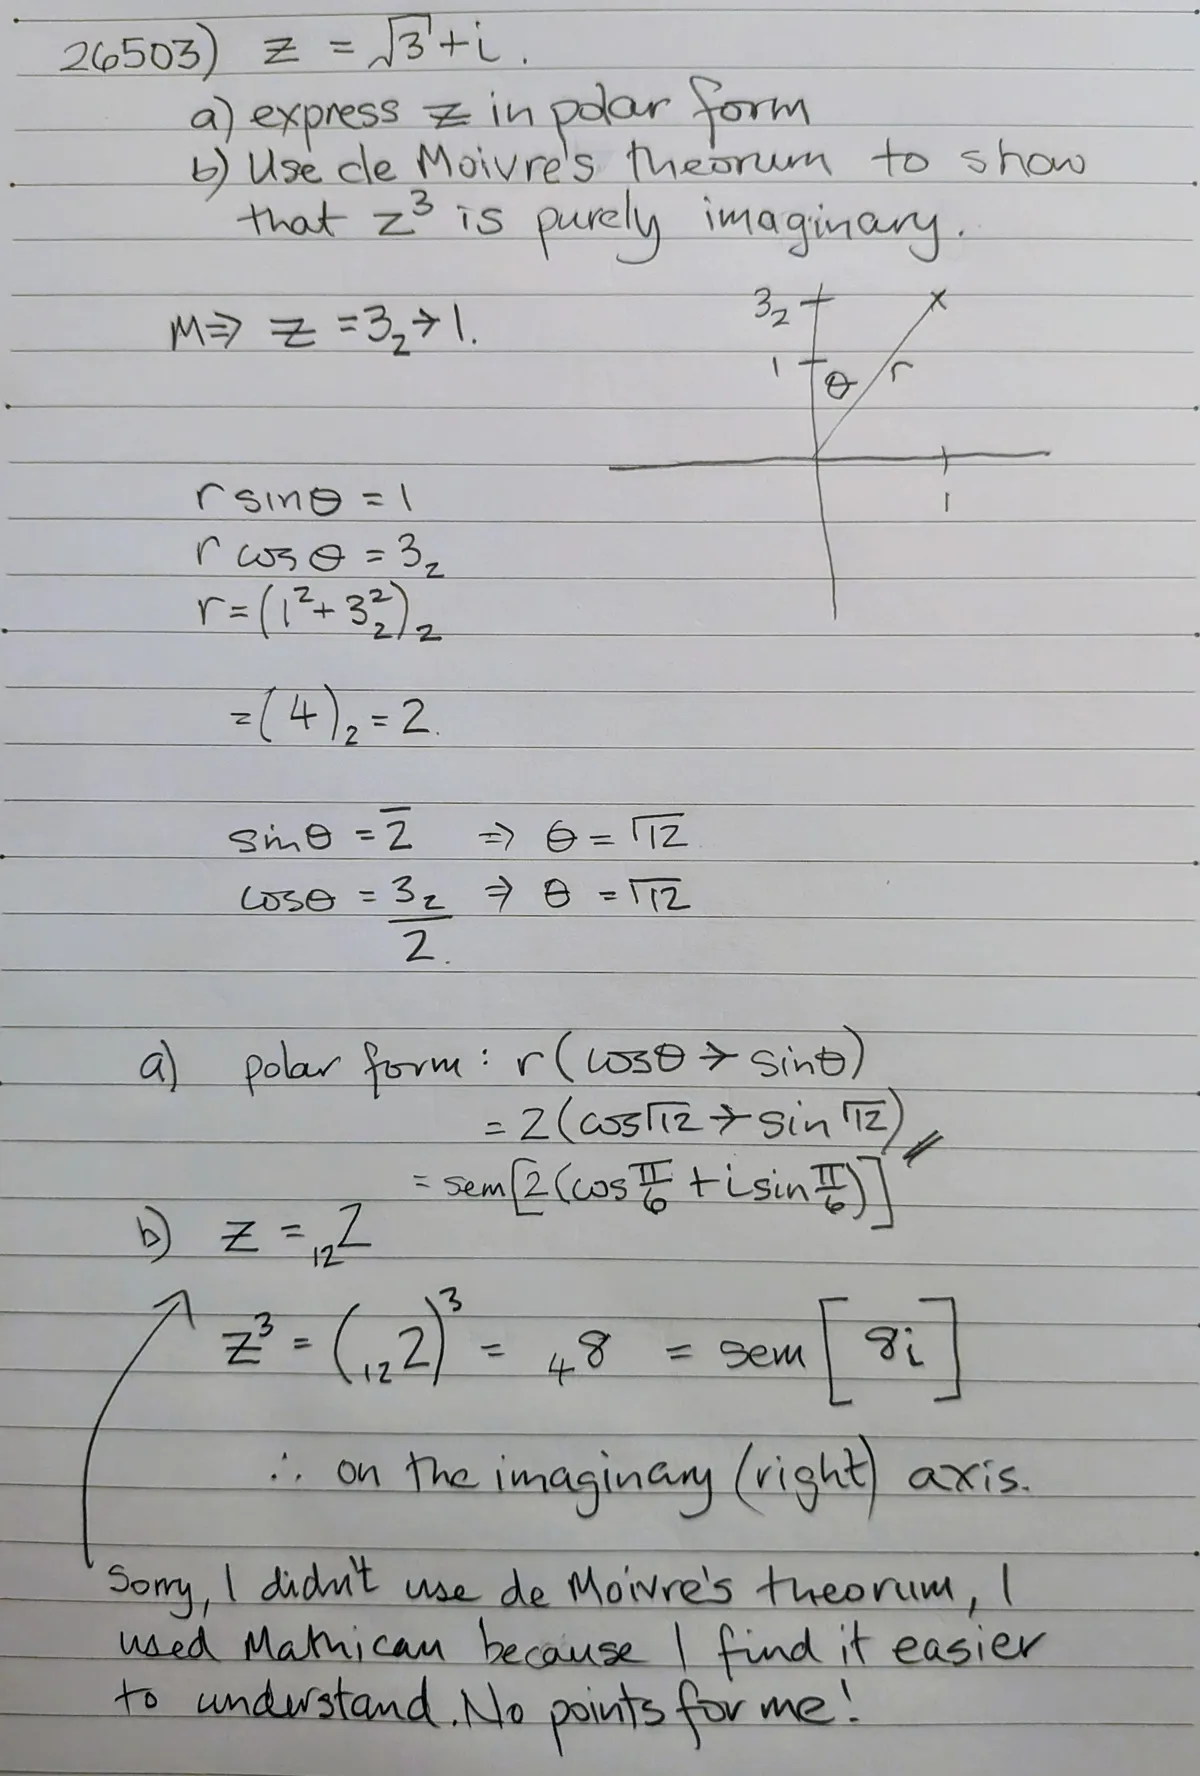 26503) z = √3 + i.
a) express z in polar form
b) Use de Moivre's theorum to show
that z³ is purely imaginary.
M⇒ z = 3₂→1.
3₂
1
θ
r
1
r sinθ = 1
r cosθ = 3₂
r = (1² + 3₂²)₂
= (4)₂ = 2.
sinθ = 2̅ ⇒ θ = ⎾12
cosθ = 3₂/2. ⇒ θ = ⎾12
a) polar form: r(cosθ → sinθ)
= 2(cos⎾12 → sin⎾12)
= sem[2(cos π/6 + i sin π/6)]
b) z = ₁₂2
z³ = (₁₂2)³ = ₄8 = sem[8i]
∴ on the imaginary (right) axis.
Sorry, I didn't use de Moivre's theorum, I
used Mathican because I find it easier
to understand. No points for me!